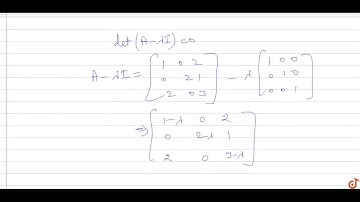 det (A-λI) = 0
A-λI = [1 0 2 - λ [1 0 0
0 2 1 0 1 0
2 0 3] 0 0 1]
⇒ [1-λ 0 2
0 2-λ 1
2 0 3-λ]